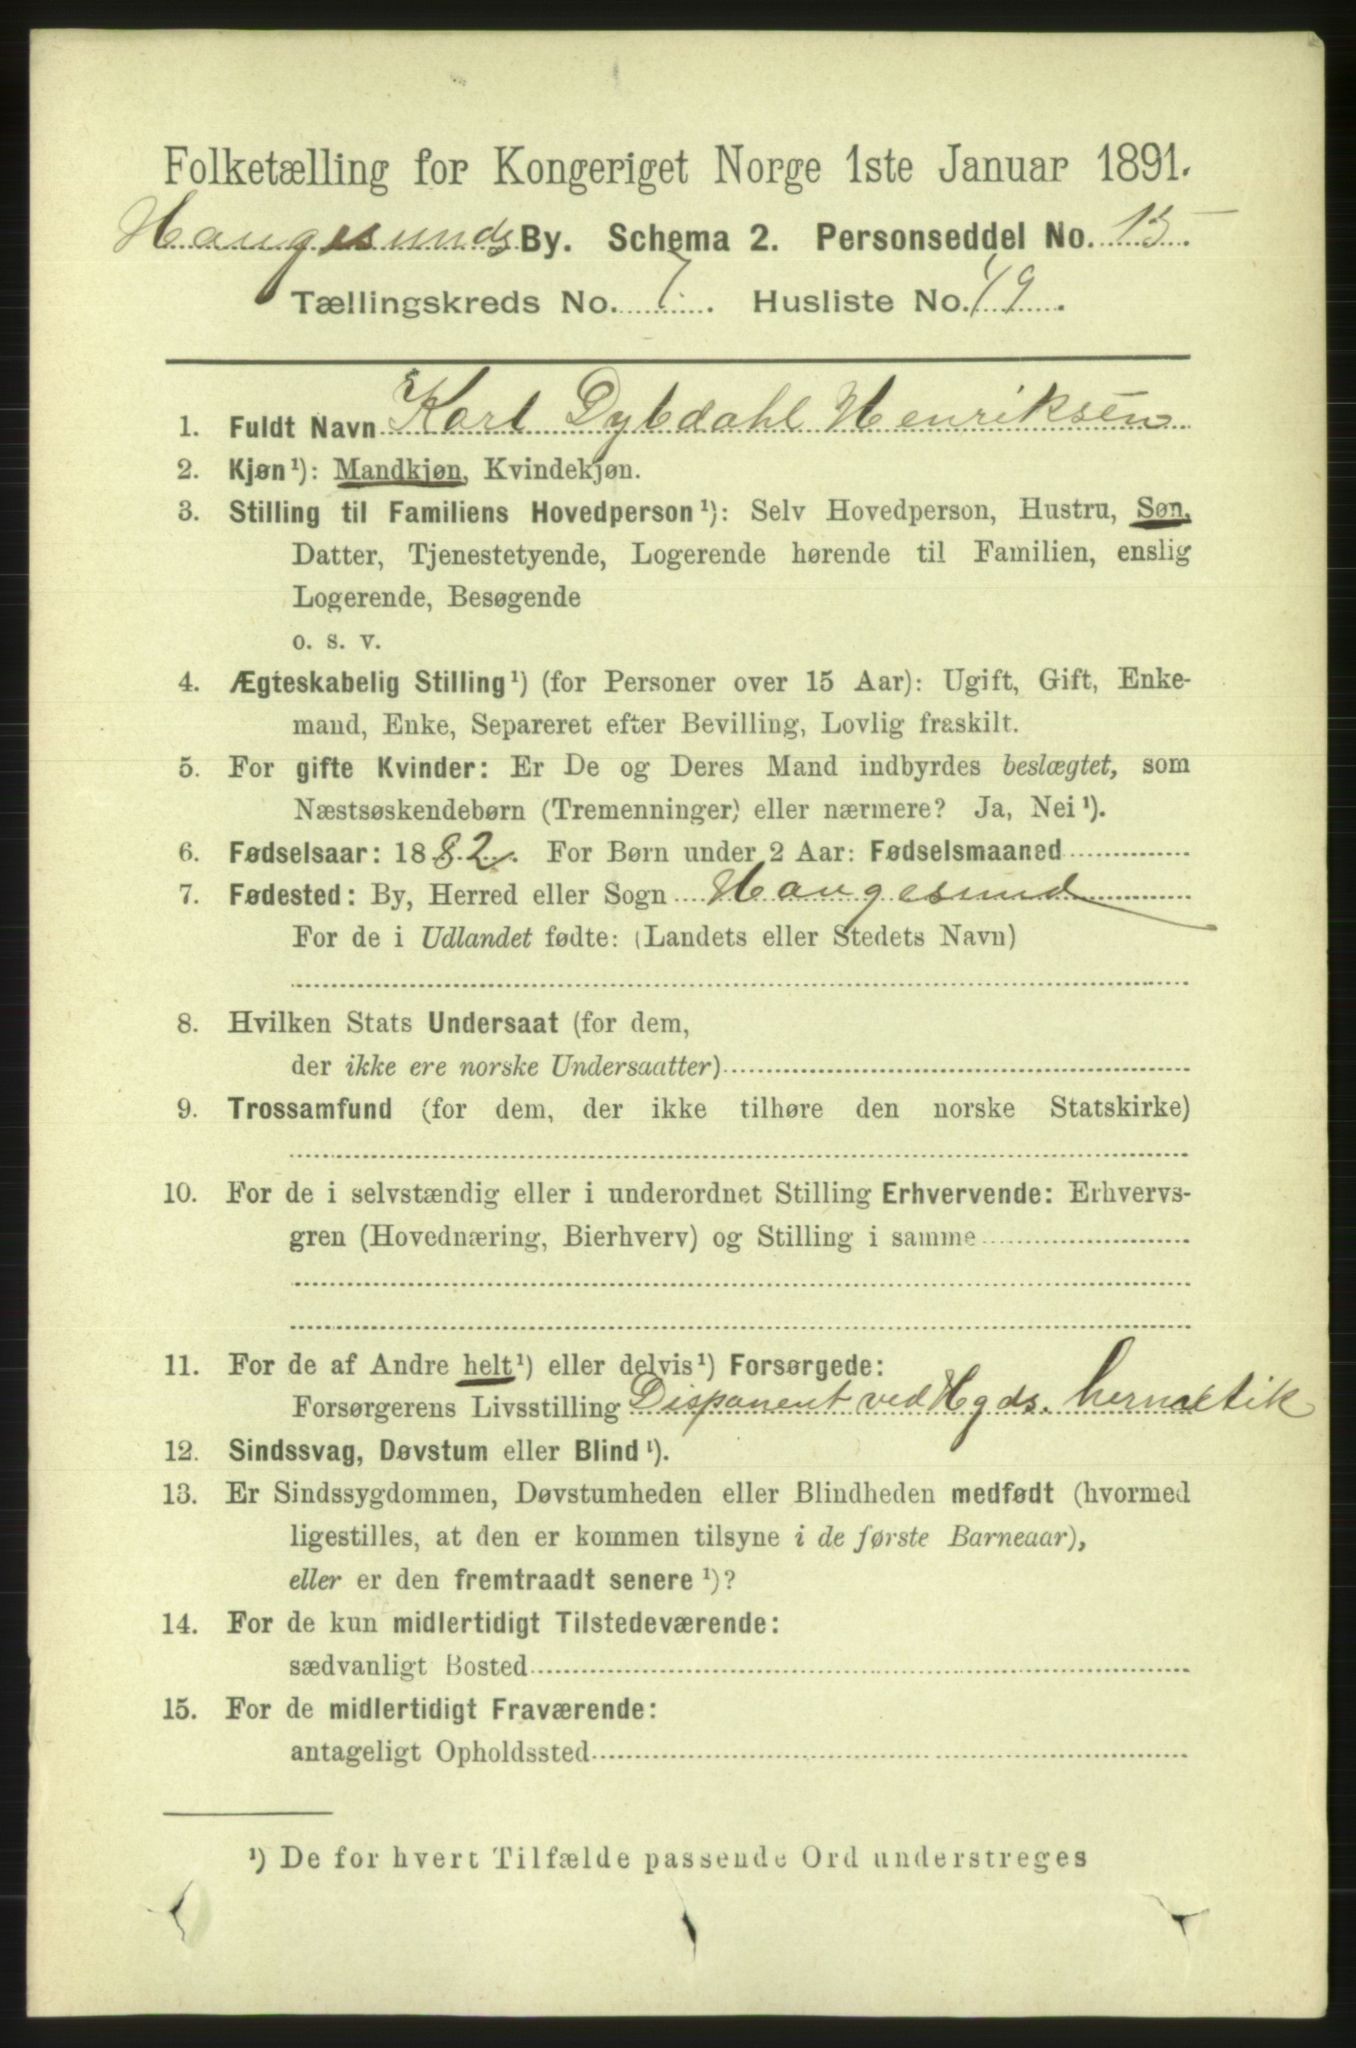 Folketælling for Kongeriget Norge 1ste Januar 1891.
Haugesunds By. Schema 2. Personseddel No. 15
Tællingskreds No. 7. Husliste No. 49.
1. Fuldt Navn Karl Dybdahl Henriksen
2. Kjøn¹): Mandkjøn, Kvindekjøn.
3. Stilling til Familiens Hovedperson¹): Selv Hovedperson, Hustru, Søn,
Datter, Tjenestetyende, Logerende hørende til Familien, enslig
Logerende, Besøgende
o. s. v.
4. Ægteskabelig Stilling¹) (for Personer over 15 Aar): Ugift, Gift, Enke-
mand, Enke, Separeret efter Bevilling, Lovlig fraskilt.
5. For gifte Kvinder: Er De og Deres Mand indbyrdes beslægtet, som
Næstsøskendebørn (Tremenninger) eller nærmere? Ja, Nei¹).
6. Fødselsaar: 1882. For Børn under 2 Aar: Fødselsmaaned
7. Fødested: By, Herred eller Sogn Haugesund
For de i Udlandet fødte: (Landets eller Stedets Navn)
8. Hvilken Stats Undersaat (for dem,
der ikke ere norske Undersaatter)
9. Trossamfund (for dem, der ikke tilhøre den norske Statskirke)
10. For de i selvstændig eller i underordnet Stilling Erhvervende: Erhvervs-
gren (Hovednæring, Bierhverv) og Stilling i samme
11. For de af Andre helt¹) eller delvis¹) Forsørgede:
Forsørgerens Livsstilling Disponent ved Hgds. hermetik
12. Sindssvag, Døvstum eller Blind¹).
13. Er Sindssygdommen, Døvstumheden eller Blindheden medfødt (hvormed
ligestilles, at den er kommen tilsyne i de første Barneaar),
eller er den fremtraadt senere¹)?
14. For de kun midlertidigt Tilstedeværende:
sædvanligt Bosted
15. For de midlertidigt Fraværende:
antageligt Opholdssted
¹) De for hvert Tilfælde passende Ord understreges